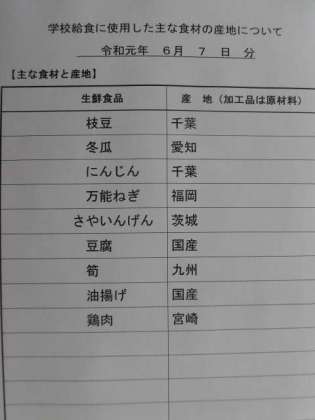 学校給食に使用した主な食材の産地について
令和元年 6月 7 日 分
【主な食材と産地】
生鮮食品 産 地（加工品は原材料）
枝豆 千葉
冬瓜 愛知
にんじん 千葉
万能ねぎ 福岡
さやいんげん 茨城
豆腐 国産
筍 九州
油揚げ 国産
鶏肉 宮崎